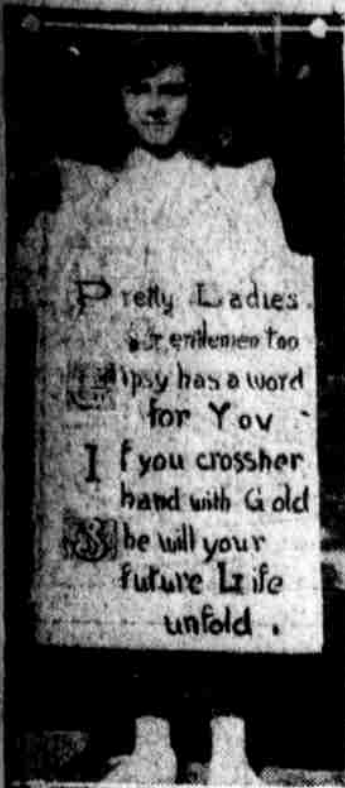 Pretty Ladies.
& Gentlemen too
Gipsy has a word
for You
If you cross her
hand with Gold
She will your
future Life
unfold.